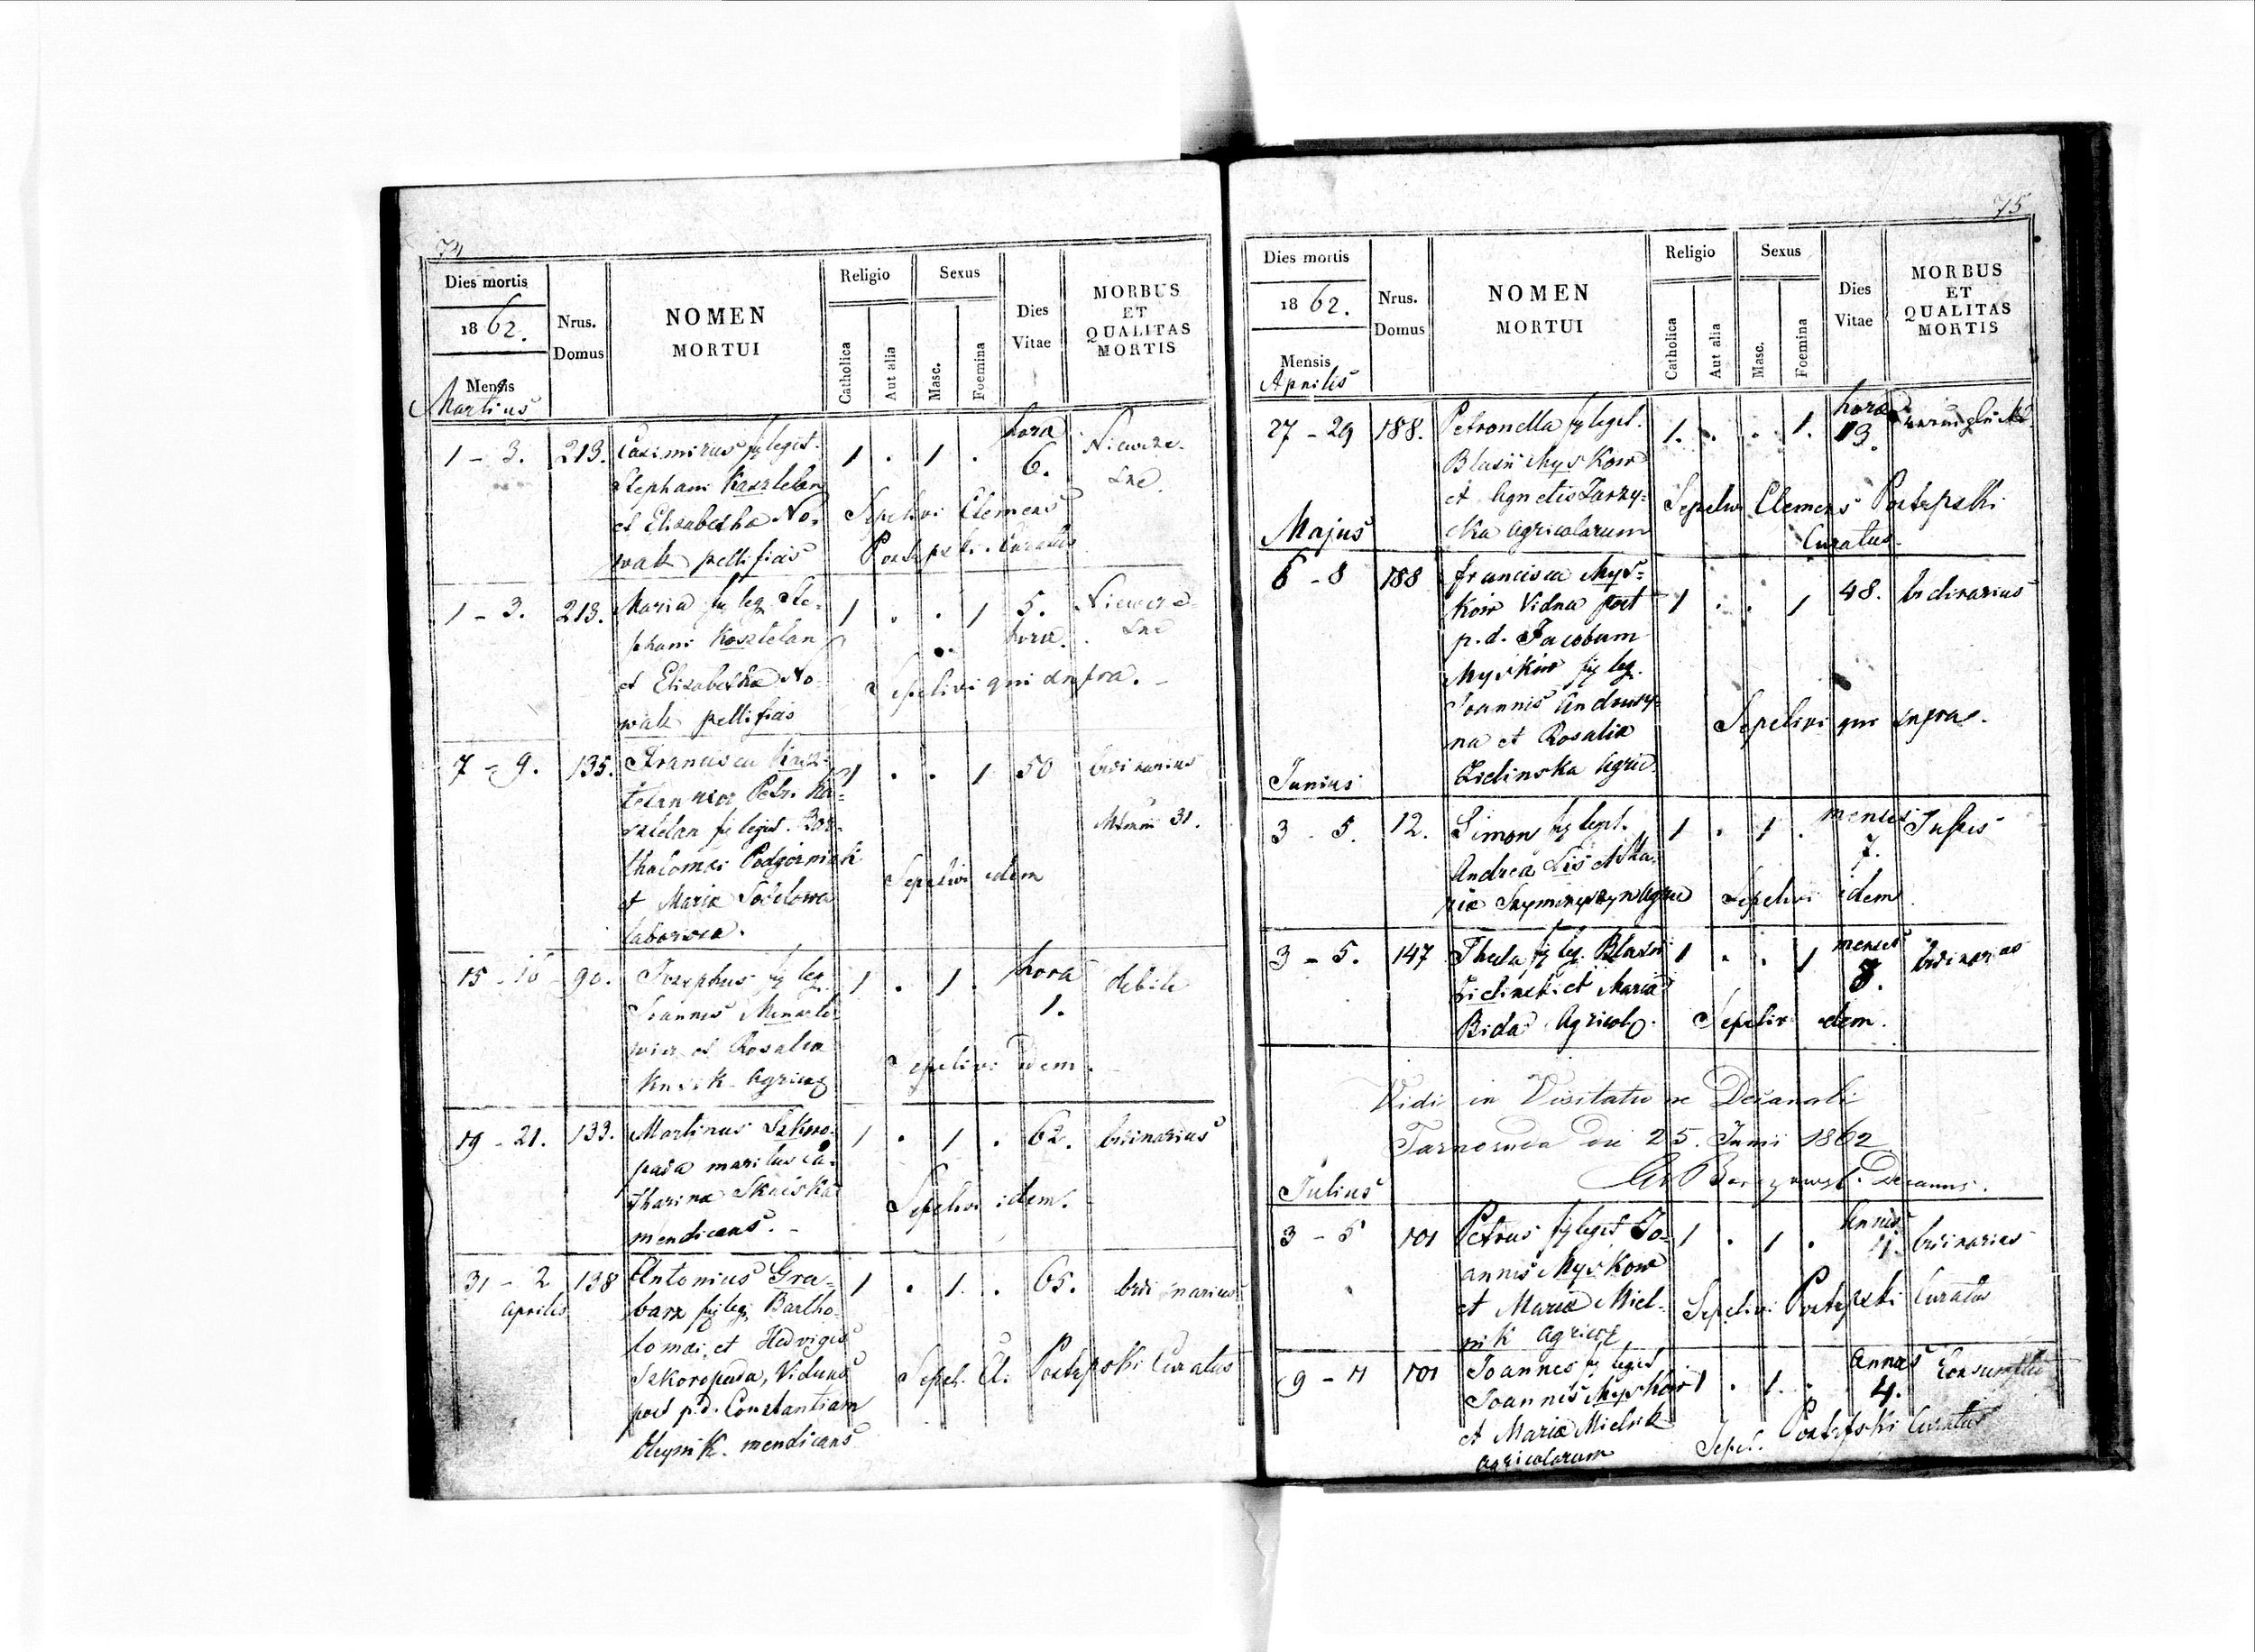 74
Dies mortis
1862.
Mensis
Martius
Nrus.
Domus
NOMEN
MORTUI
Religio
Catholica
Aut alia
Sexus
Masc.
Foemina
Dies
Vitae
MORBUS
ET
QUALITAS
MORTIS
1 - 3. 213. Casimirus fil legit. 1 . 1 . hora 6.
Stephani Kasztelan
et Elisabetha No-
wak pellificis
Sepelivi Clemens
Curatus
1 - 3. 213. Maria fil leg. Ste- 1 . . 1 5. hora.
phani Kosztelan
et Elisabetha No-
wak pellificis
Sepelivi qui infra. -
7 - 9. 135. Francisca Kasz- 1 . . 1 50 Ordinarius
telan uxor Petri Ka-
sztelan fil legit. Bar-
tholomei Podgórniak
et Maria
Sepelivi idem
15 - 16 - 90. Josephus fil leg. 1 . 1 . hora 1. debile
Joannis
et Rosalia
Sepelivi idem.
19 - 21. 133. Martinus Szkoro- 1 . 1 . 62. Ordinarius
pada maritus Ca-
tharina
mendicans. -
Sepelivi idem.
31 - 2 Aprilis 138 Antonius Gra- 1 . 1 . 65. Ordinarius
barz fil leg. Bartho-
lomei et Hedvigis
Szkoropada, Viduus
post p.d. Constantiam
Oleynik. mendicans
Sepel. Cl. Curatus
75
Dies mortis
1862.
Mensis
Aprilis
Nrus.
Domus
NOMEN
MORTUI
Religio
Catholica
Aut alia
Sexus
Masc.
Foemina
Dies
Vitae
MORBUS
ET
QUALITAS
MORTIS
27 - 29 188. Petronella fil legit. 1. . . 1. hora 13.
Blasii Myskow
et Agnetis Zarzy-
cka Agricolarum
Sepelivi Clemens
Curatus.
Majus
6 - 8 188 Francisca Mys- 1 . . 1 48. Ordinarius
ków Vidua post
p.d. Jacobum
Myśków fil leg.
Joannis
na et Rosalia
Zielinska Agric.
Sepelivi qui infra.
Junius
3 - 5. 12. Simon fil legit. 1 . 1 . menses 7. Tussis
Andrea Lis et Ma-
ria
Sepelivi idem
3 - 5. 147 Thecla fil leg. Blasii 1 . . 1 menses 8. Ordinarius
Zielinski et Maria
Bida Agricol.
Sepelivi idem.
Vidi in Visitatione Decanali
Tarnoruda die 25. Junii 1862
Decanus.
Julius
3 - 5 101 Petrus fil legit Jo- 1 . 1 . Annis Ordinarius
annis Myskow
et Maria Miel-
nik agricol
Sepelivi Curatus
9 - 11 101 Joannes fil legit 1 . 1 . Annos 4.
Joannis Myskow
et Maria Mielnik
Agricolarum
Sepel. Curatus